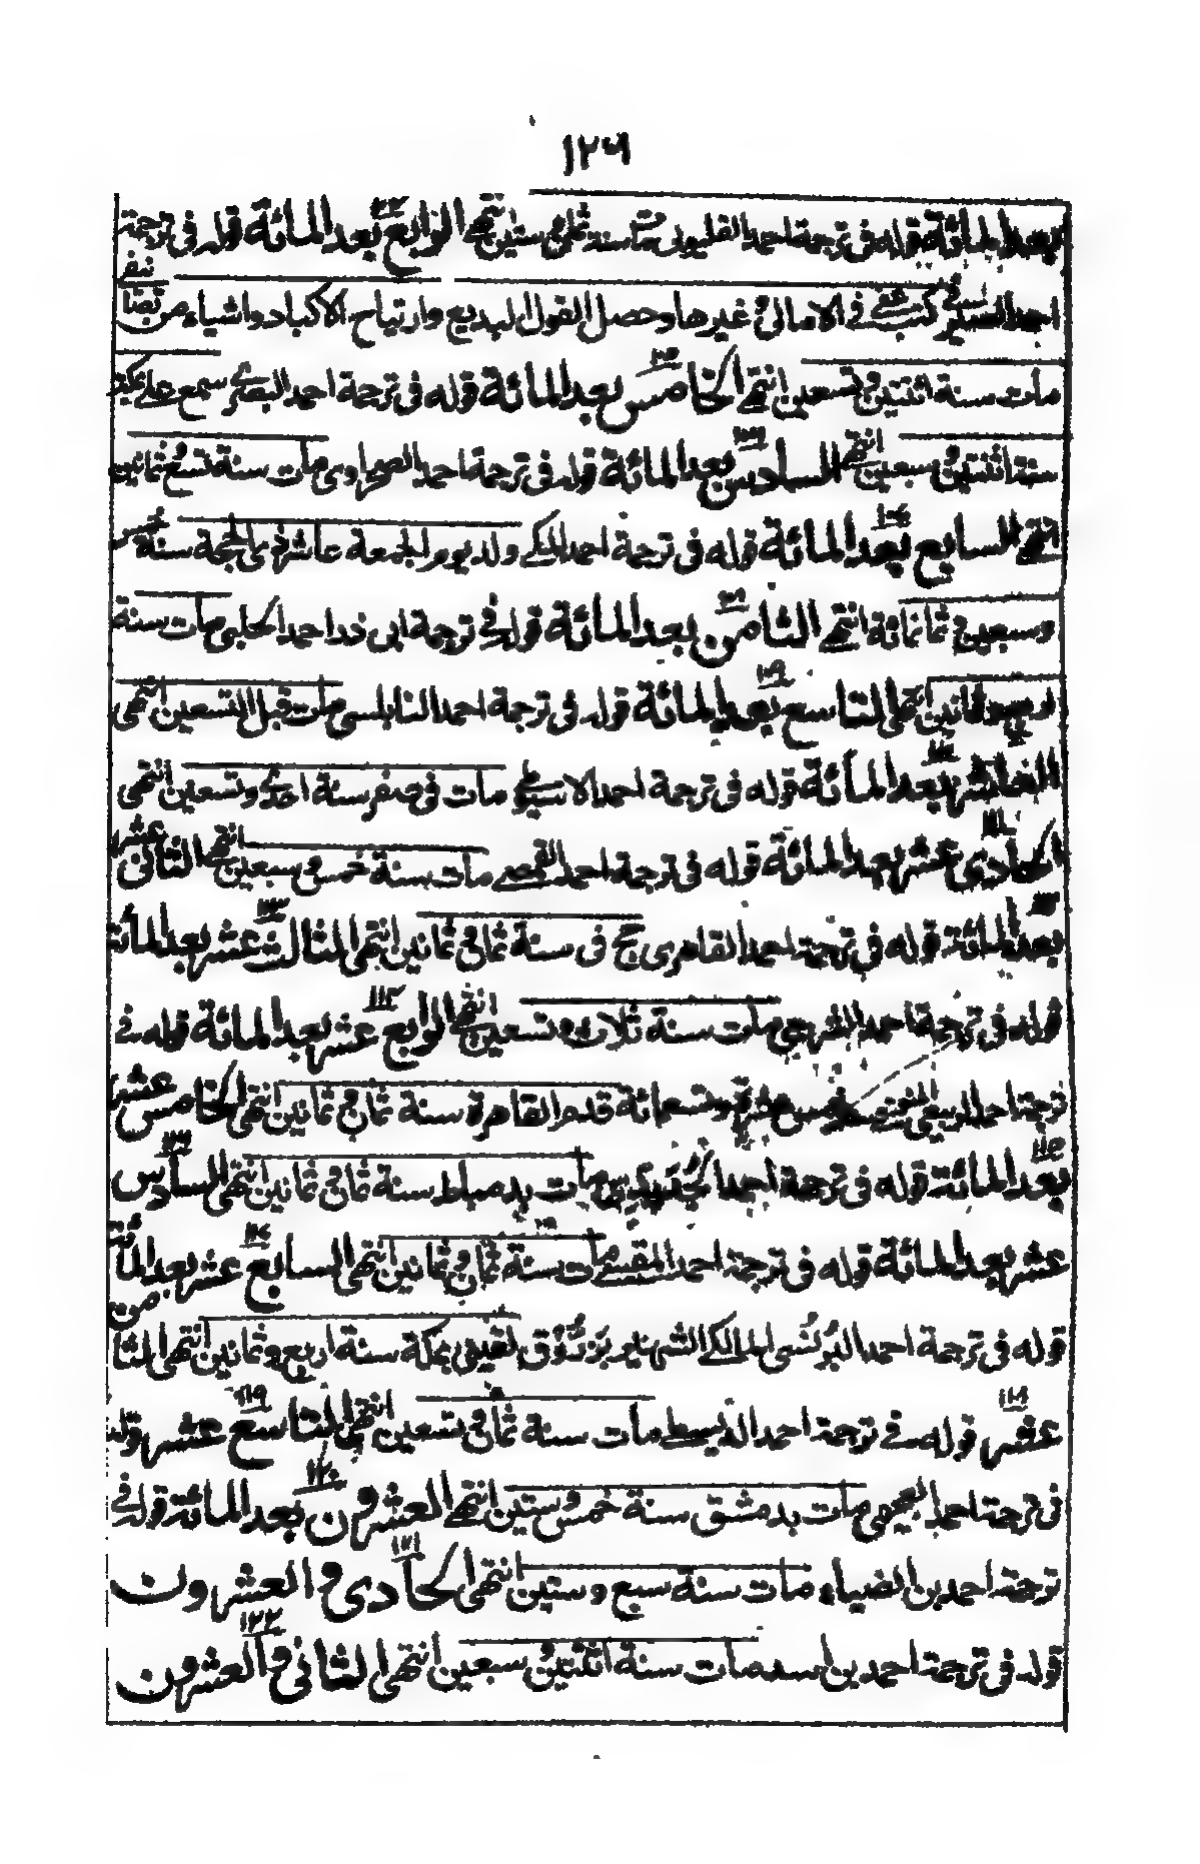 ١٢٦
بعد المائة قوله فى ترجمة احمد القليوبى مات سنة ثمان و ستين انتهى الرابع بعد المائة قوله فى ترجمة
احمد كتب عنى فى الامالى و غيرها و حصل القول البديع و ارتياح الاكباد و اشياء من تصانيفى
مات سنة اثنتين و تسعين انتهى الخامس بعد المائة قوله فى ترجمة احمد البصرى سمع على بمكة
سنة اثنتين و سبعين انتهى السادس بعد المائة قوله فى ترجمة احمد الصحراوى مات سنة تسع ثمانين
انتهى السابع بعد المائة قوله فى ترجمة احمد المكى ولد يوم الجمعة عاشر ذى الحجة سنة خمس
و سبعين و ثمانمائة انتهى الثامن بعد المائة قوله فى ترجمة ابى ذر احمد الحلبى مات سنة
اربع و ثمانين انتهى التاسع بعد المائة قوله فى ترجمة احمد النابلسى مات قبل التسعين انتهى
العاشر بعد المائة قوله فى ترجمة احمد الاسيوطى مات فى صفر سنة احدى و تسعين انتهى
الحادى عشر بعد المائة قوله فى ترجمة احمد القمصى مات سنة خمس و سبعين انتهى الثانى عشر
بعد المائة قوله فى ترجمة احمد القاهرى حج فى سنة ثمان و ثمانين انتهى الثالث عشر بعد المائة
قوله فى ترجمة احمد مات سنة ثلاث و تسعين انتهى الرابع عشر بعد المائة قوله فى
ترجمة احمد و تسعمائة قدم القاهرة سنة ثمان و ثمانين انتهى الخامس عشر
١١٥
بعد المائة قوله فى ترجمة احمد مات بدمياط سنة ثمان و ثمانين انتهى السادس
عشر بعد المائة قوله فى ترجمة احمد المقسى مات سنة ثمان و ثمانين انتهى السابع عشر بعد المائة
قوله فى ترجمة احمد البرنسى المالكى الشهير بزروق لقينى بمكة سنة اربع و ثمانين انتهى الثامن
عشر قوله فى ترجمة احمد مات سنة ثمان و تسعين انتهى التاسع عشر قوله
فى ترجمة احمد مات بدمشق سنة خمس و ستين انتهى العشرون بعد المائة قوله فى
ترجمة احمد بن الضياء مات سنة سبع و ستين انتهى الحادى و العشرون
قوله فى ترجمة احمد بن اسد مات سنة اثنتين و سبعين انتهى الثانى و العشرون